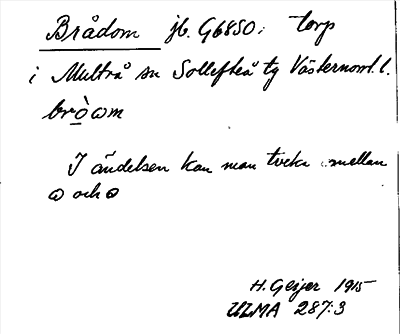 Brådom jb. G6850; torp
i Multrå sn Sollefteå tg Västernorrl. l.
bròωm
I ändelsen kan man tveka mellan
ω och
H. Geijer 1915
ULMA 287:3